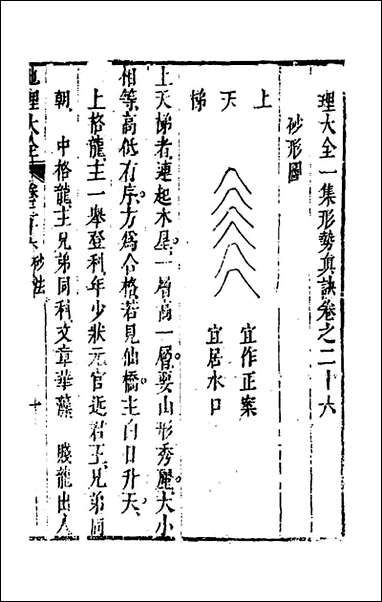 理大全一集形勢真訣卷之二十六
砂形圖
上天梯
宜作正案
宜居水口
上天梯者連起木星一層高一層要山形秀麗大小
相等高低有序方爲合格若見仙橋主白日升天
上格龍主一舉登科年少狀元官近君王兄弟同
朝 中格龍主兄弟同科文章華藻 賤龍出人
地理大全 卷二十六 砂法 十